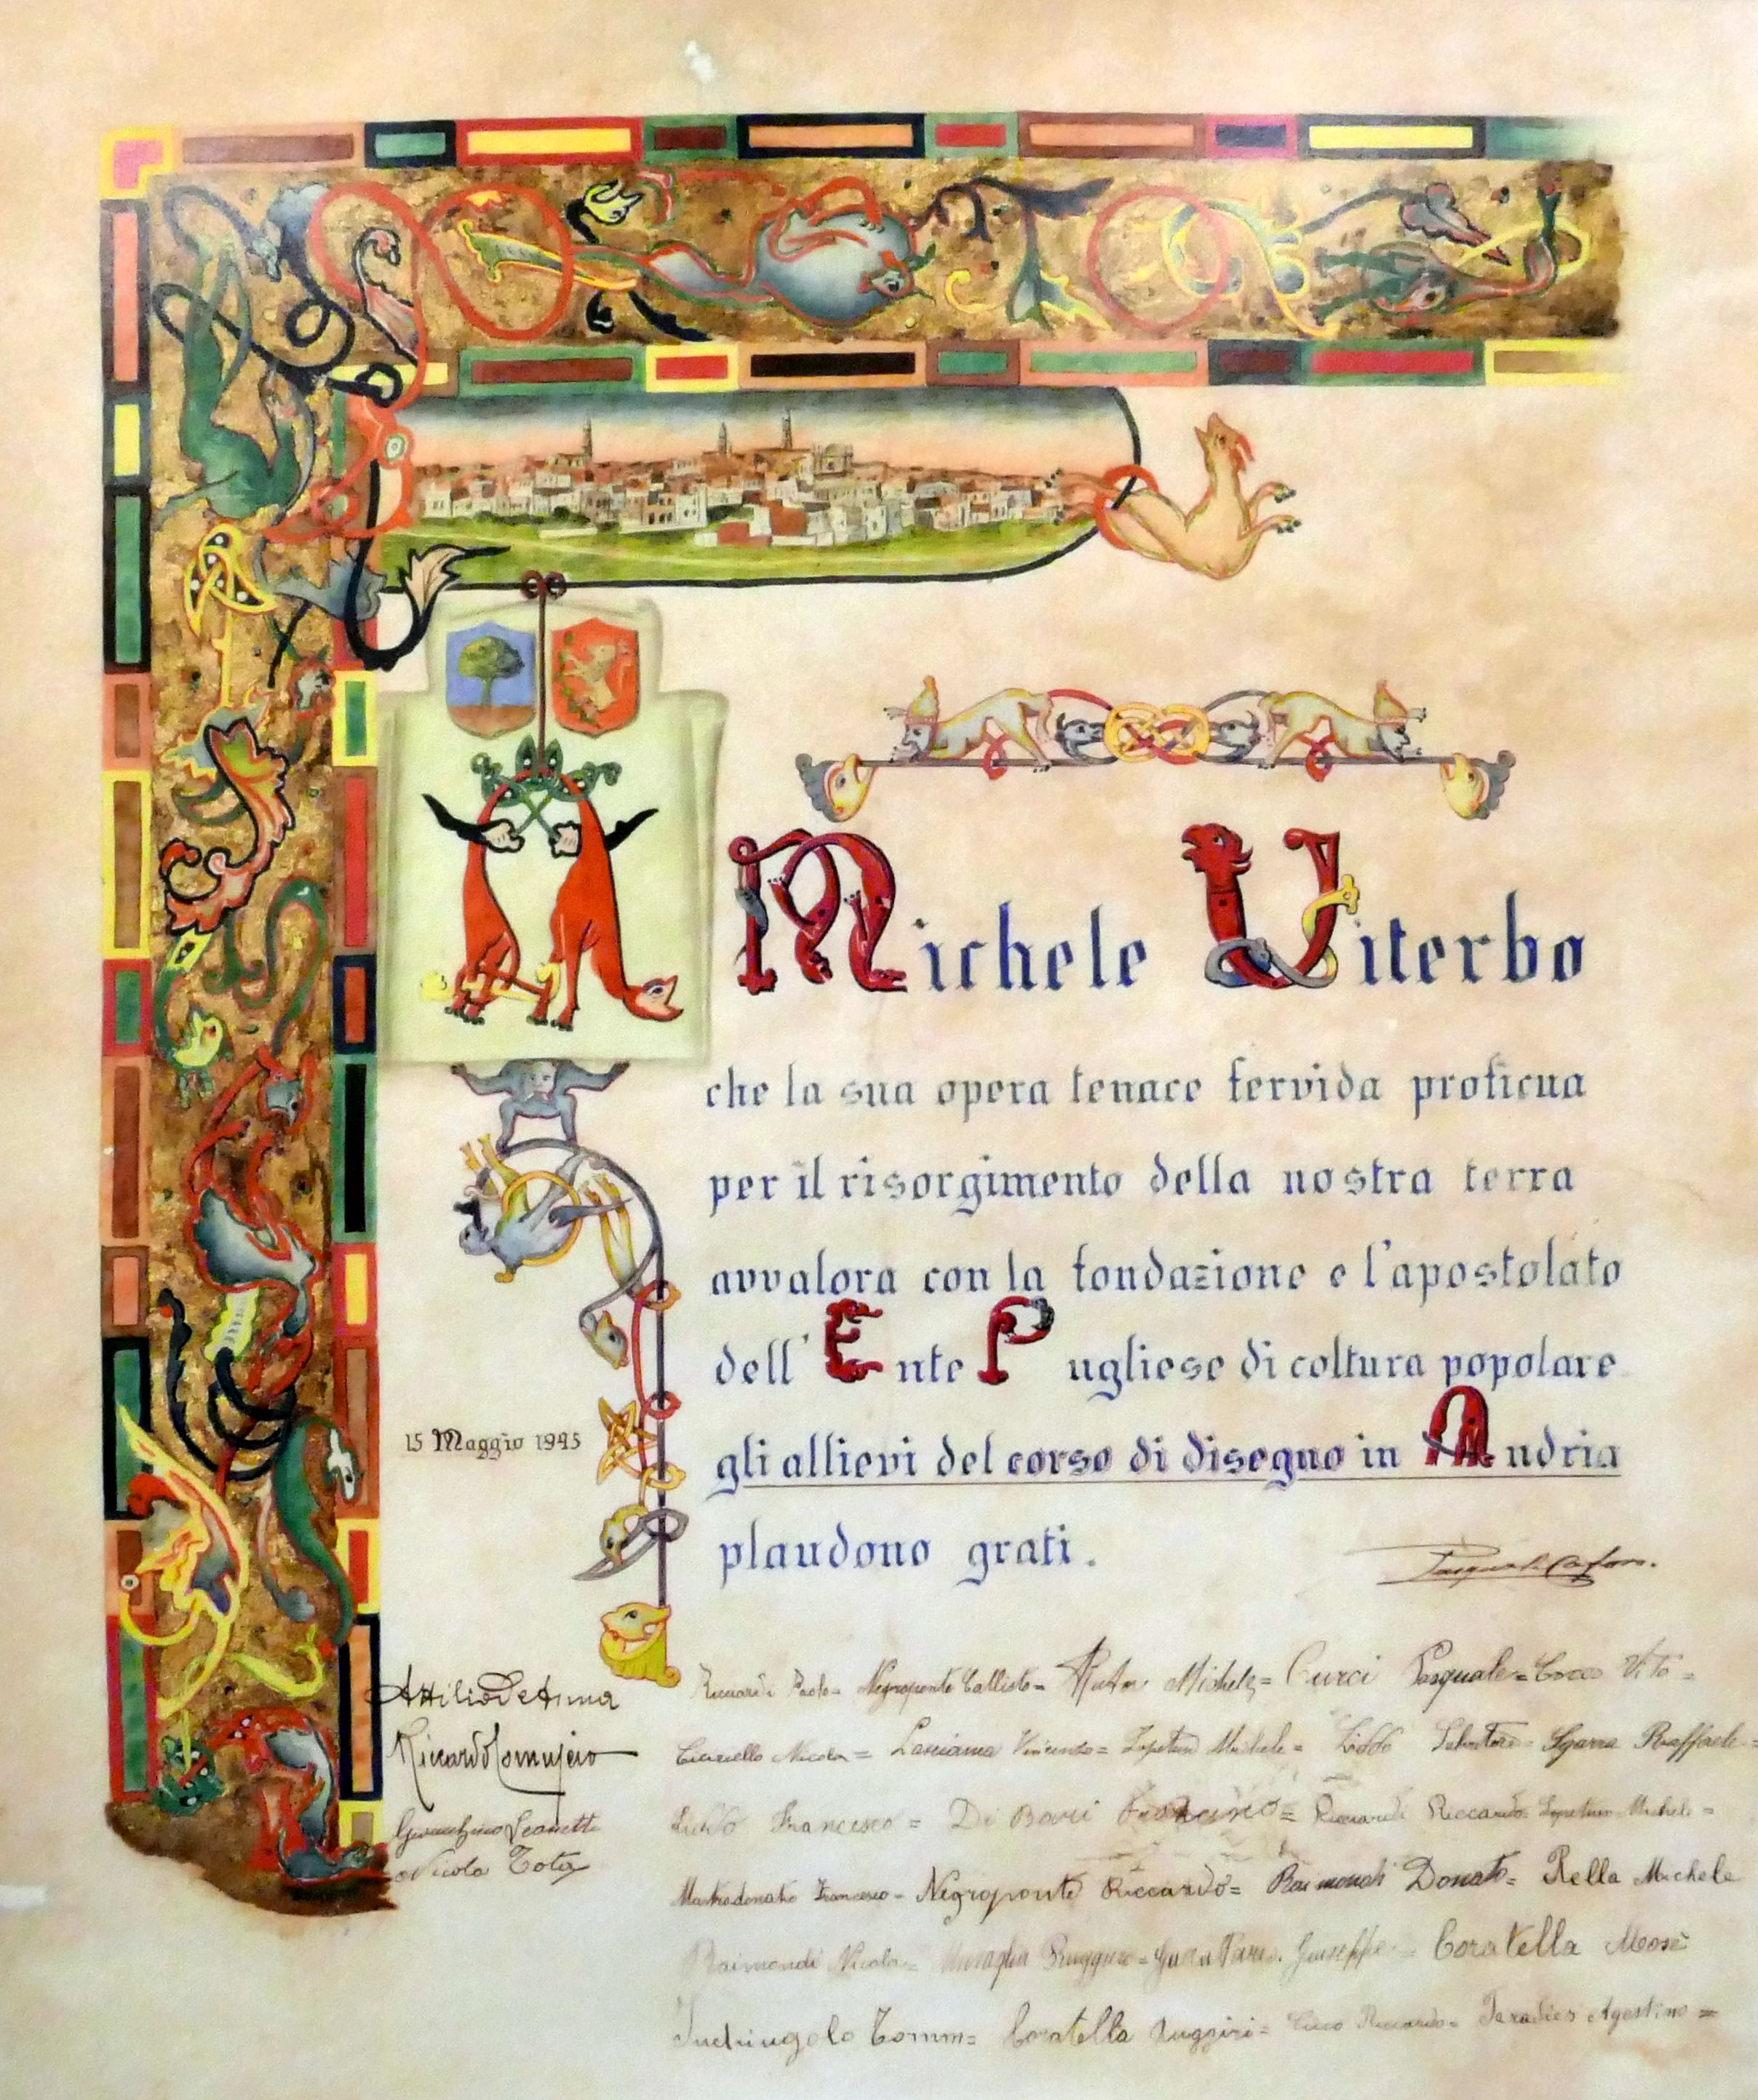 A Michele Viterbo
che la sua opera tenace fervida proficua
per il risorgimento della nostra terra
avvalora con la fondazione e l'apostolato
dell'Ente Pugliese di coltura popolare
15 Maggio 1945
gli allievi del corso di disegno in Andria
plaudono grati.
Attilio De Anna
Riccardo Lomuscio
Nicola Tota
Ricciardi Paolo= Negroponte Callisto= Michele= Curci Pasquale= Cocco Vito=
Nicola= Lasciama Vincenzo= Lopetuso Michele= Liddo Salvatore= Sgarra Raffaele=
Liddo Francesco= Di Bari = Ricciardi Riccardo= Lopetuso Michele=
Mastrodonato Francesco= Negroponte Riccardo= Raimondi Donato= Rella Michele
Raimondi Nicola= Giuseppe= Coratella Mosè
Tomm= Coratella Ruggiri= Riccardo= Agostino=